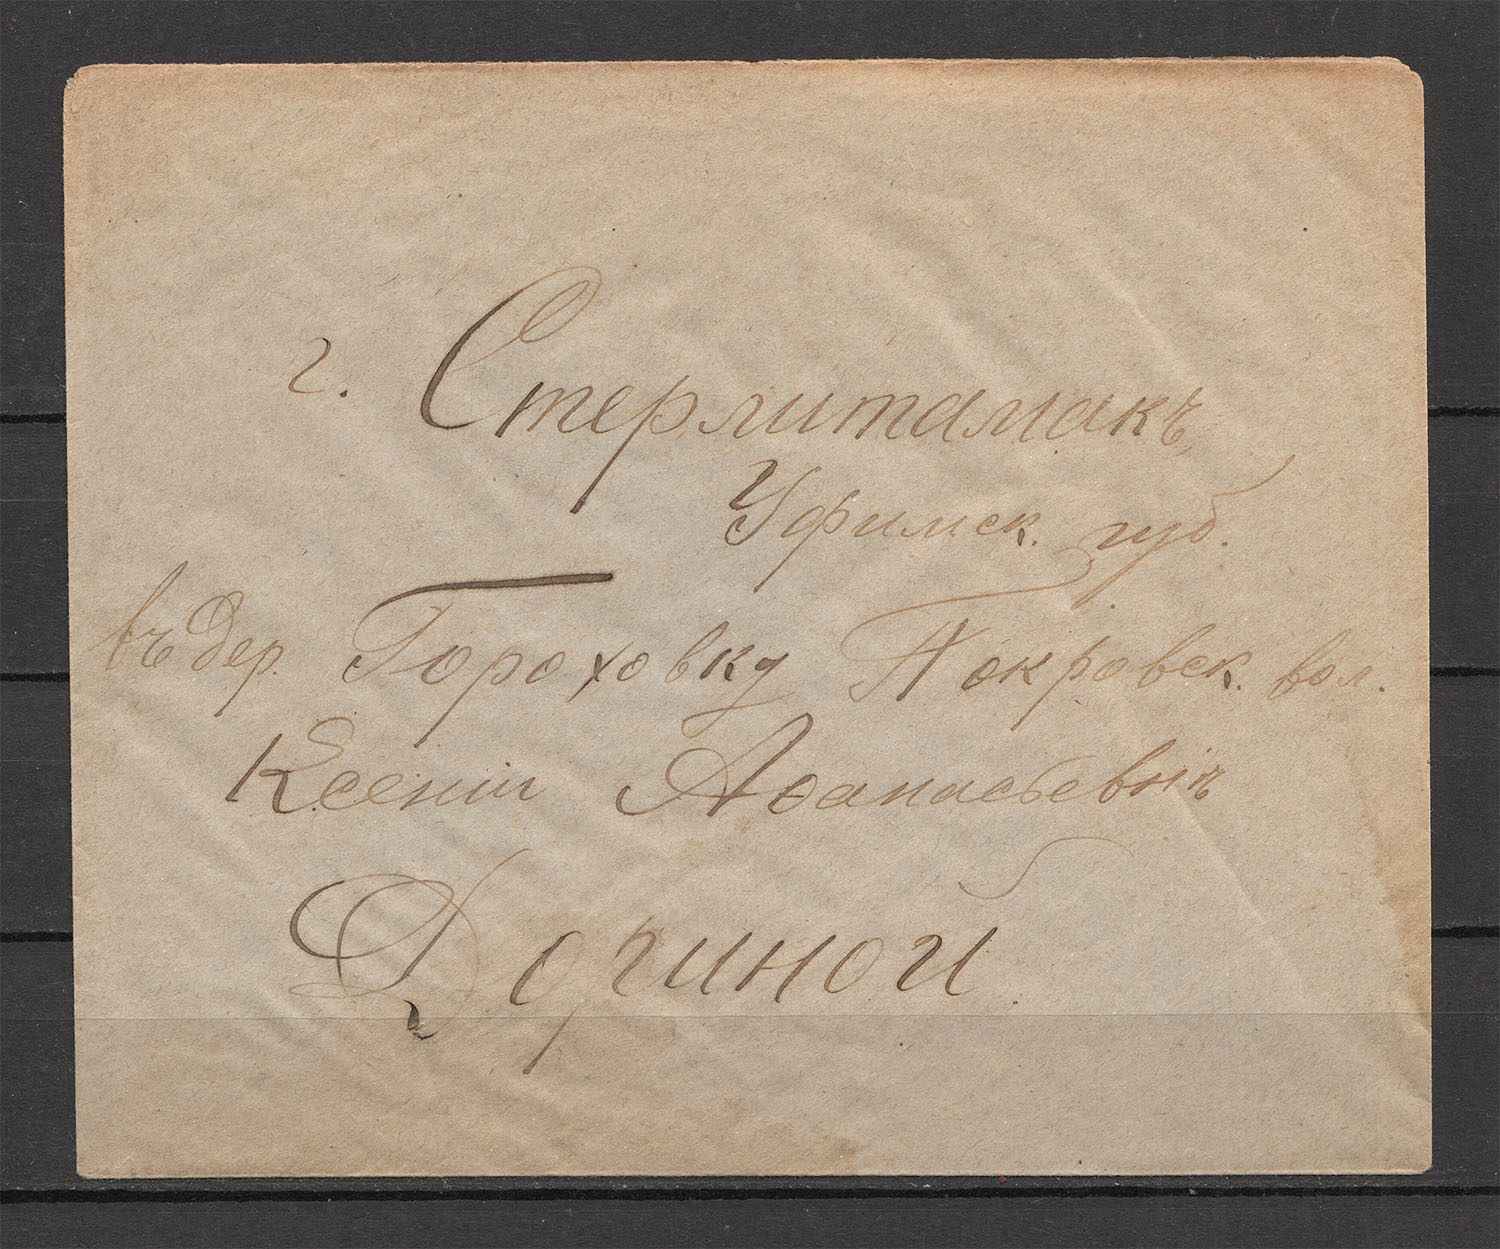 г. Стерлитамакъ
Уфимск. губ.
въ дер. Гороховку Покровск. вол.
Ксеніи Аѳанасьевнѣ
Дориной